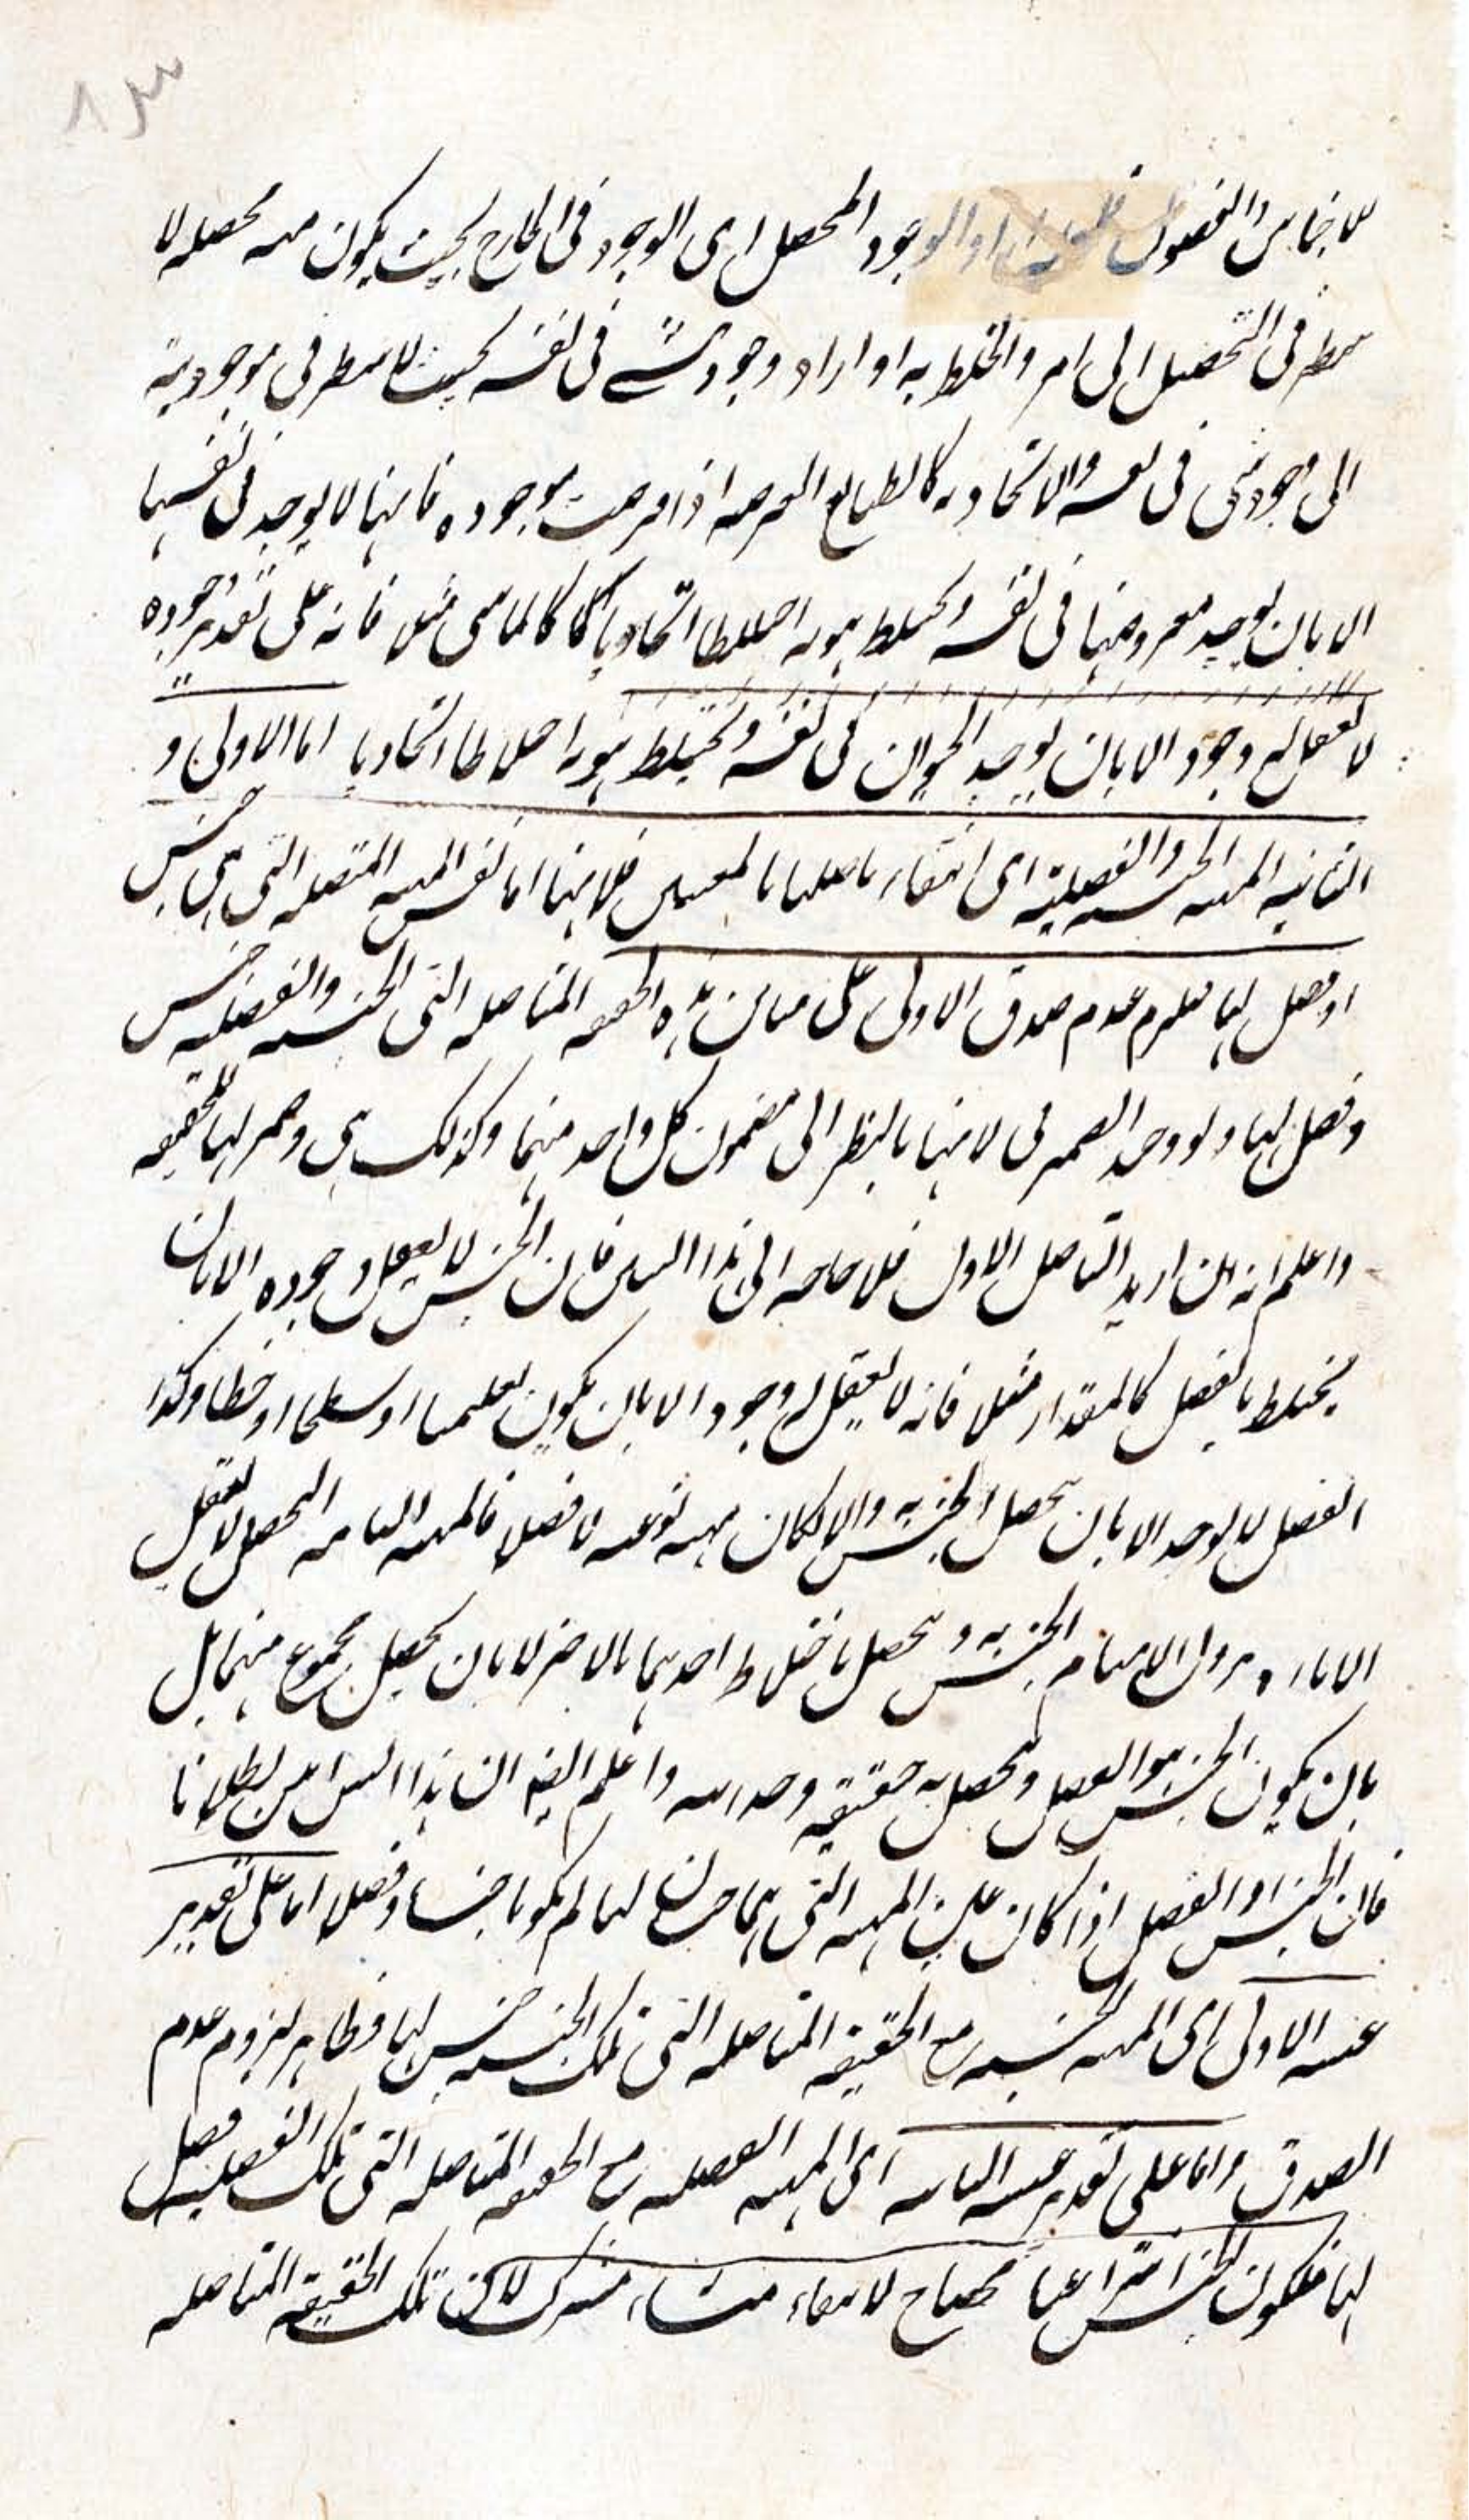 ۸۳
للاجناس والفصول او الوجود المحصل اى الوجود فى الخارج بحيث يكون منه محصله لا
فى التحصيل الى امر واختلط به او اراد وجود شئ فى نفسه بحيث لا ينتظر فى موجوديته
الى وجود شئ فى نفسه والاتحاد به كالطبايع العرضيه اذا فرضت موجوده فانها لا يوجد فى نفسها
الا بان يوجد معروضها فى نفسه ويختلط هو به اختلاطا اتحاديا كالماشى مثلا فانه على تقدير وجوده
لا يعقل له وجود الا بان يوجد الحيوان فى نفسه ويختلط هو به اختلاطا اتحاديا اما الاولى و
الثانيه المهيه الجنسيه والفصليه اى انتفاء تاصلها بالمعنيين فلانها اما نفس المهيه المتصله التى هى جنس
او فصل لها فيلزم عدم صدق الاولى على مباين هذه الحقيقه المتاصله التى الجنسيه والفصليه جنس
وفصل لها ولو وحد الضمير فى لانها بالنظر الى مضمون كل واحد منهما وكذلك هى وضمير لها للحقيقه
واعلم انه ان اريد التاصل الاول فلا حاجه الى هذا البيان فان الجنس لا يعقل وجوده الا بان
يختلط بالفصل كالمقدار مثلا فانه لا يعقل له وجود الا بان يكون تعليميا او سطحا او خطا وكذا
الفصل لا يوجد الا بان يحصل الجنس به والا لكان مهيه نوعيه لا فصلا فالمهيه التامه التحصل لا يعقل
الا بازاء وزوال الابهام الجنس به و يحصل باختلاط احدهما بالاخر لا بان يحصل مجموع منهما بل
بان يكون الجنس هو الفصل ويحصل به حقيقه وحدانيه واعلم ايضا ان هذا البيان بين بطلانا
فان الجنس او الفصل اذا كان عين المهيه التى هما جزءان لها لم يكونا جنسا وفصلا اما على تقدير
عينيه الاولى اى المهيه الجنسيه مع الحقيقه المتاصله التى تلك الجنسيه جنس لها فظاهر لزوم عدم
الصدق واما على تقدير عينيه الثانيه اى المهيه الفصليه مع الحقيقه المتاصله التى تلك الفصليه فصل
لها فلكون الجنس انتزاعيا محتاج لانتفاء منشاء مشترك لا كون تلك الحقيقه المتاصله